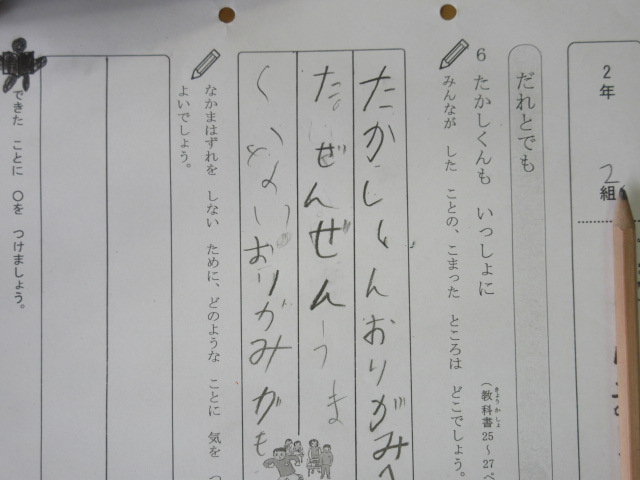 2年 2組
だれとでも
6 たかしくんも いっしょに
(教科書25〜27ペ
きょうかしょ
みんなが した ことの、こまった ところは どこでしょう。
たかしくんおりがみへ
た。ぜんぜんうま
くないおりがみがも
なかまはずれを しない ために、どのような ことに 気を つ
よいでしょう。
できた ことに ○を つけましょう。